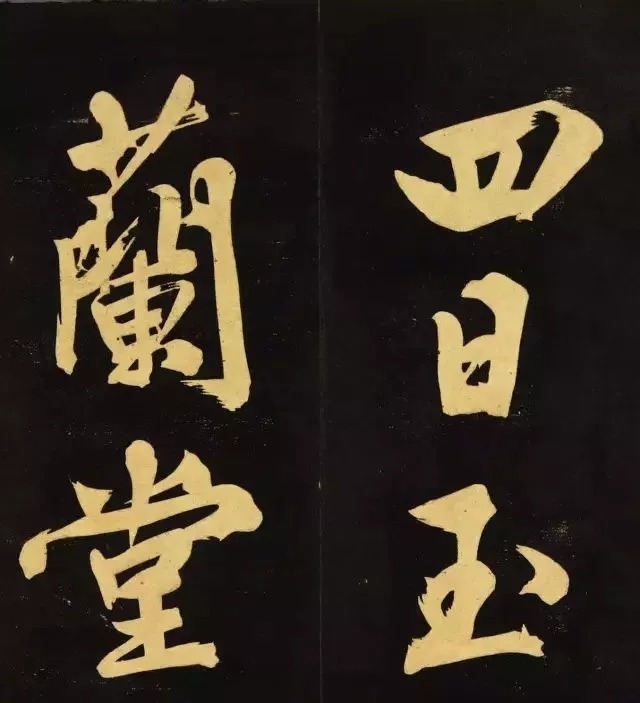 四日玉
蘭堂